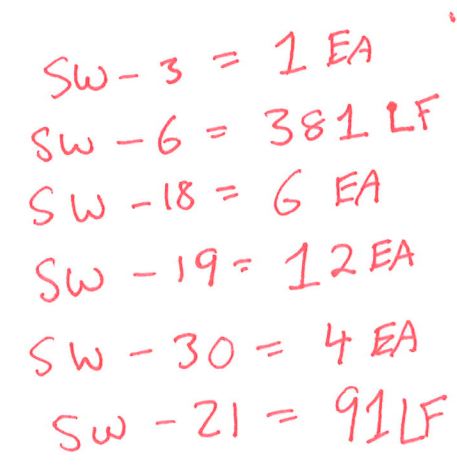 SW - 3 = 1 EA
SW - 6 = 381 LF
SW - 18 = 6 EA
SW - 19 = 12 EA
SW - 30 = 4 EA
SW - 21 = 91 LF